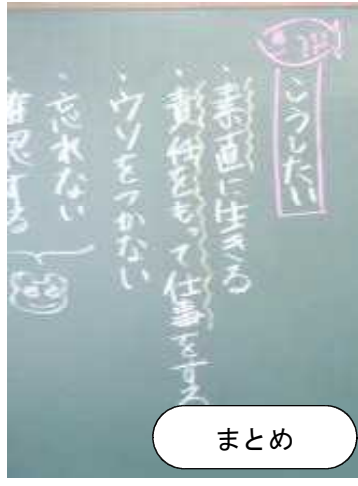 こうしたい
・素直に生きる
・責任をもって仕事をする
・ウソをつかない
・忘れない
まとめ